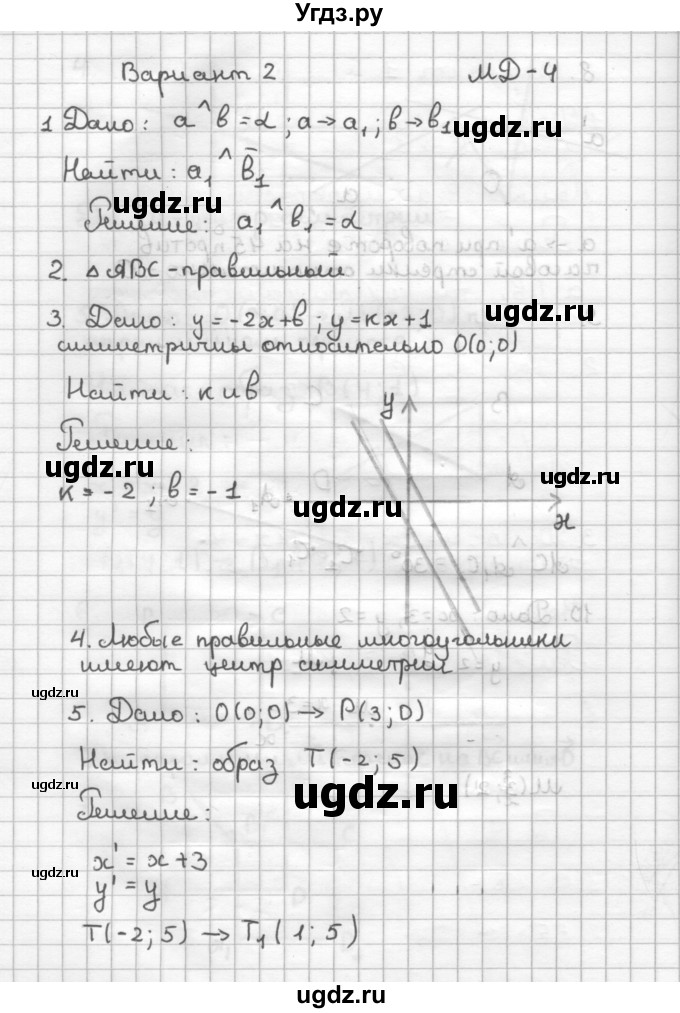 Угдз.ру
Вариант 2 МД-4
1 Дано: a^b=α; a→a₁; b→b₁
ugdz.ru
Найти: a₁^b̄₁
ugdz.ru
Решение: a₁^b₁=α
2. △ABC-правильный
ugdz.ru
3. Дано: y=-2x+b; y=кx+1
симметричны относительно O(0;0)
Найти: к и b
y
Решение:
ugdz.ru
ugdz.ru
к=-2; b=-1
ugdz.ru
x
4. Любые правильные многоугольники
имеют центр симметрии
ugdz.ru
5. Дано: O(0;0)→P(3;0)
Найти: образ T(-2;5)
ugdz.ru
ugdz.ru
Решение:
x'=x+3
ugdz.ru
y'=y
T(-2;5)→T₁(1;5)
ugdz.ru
ugdz.ru